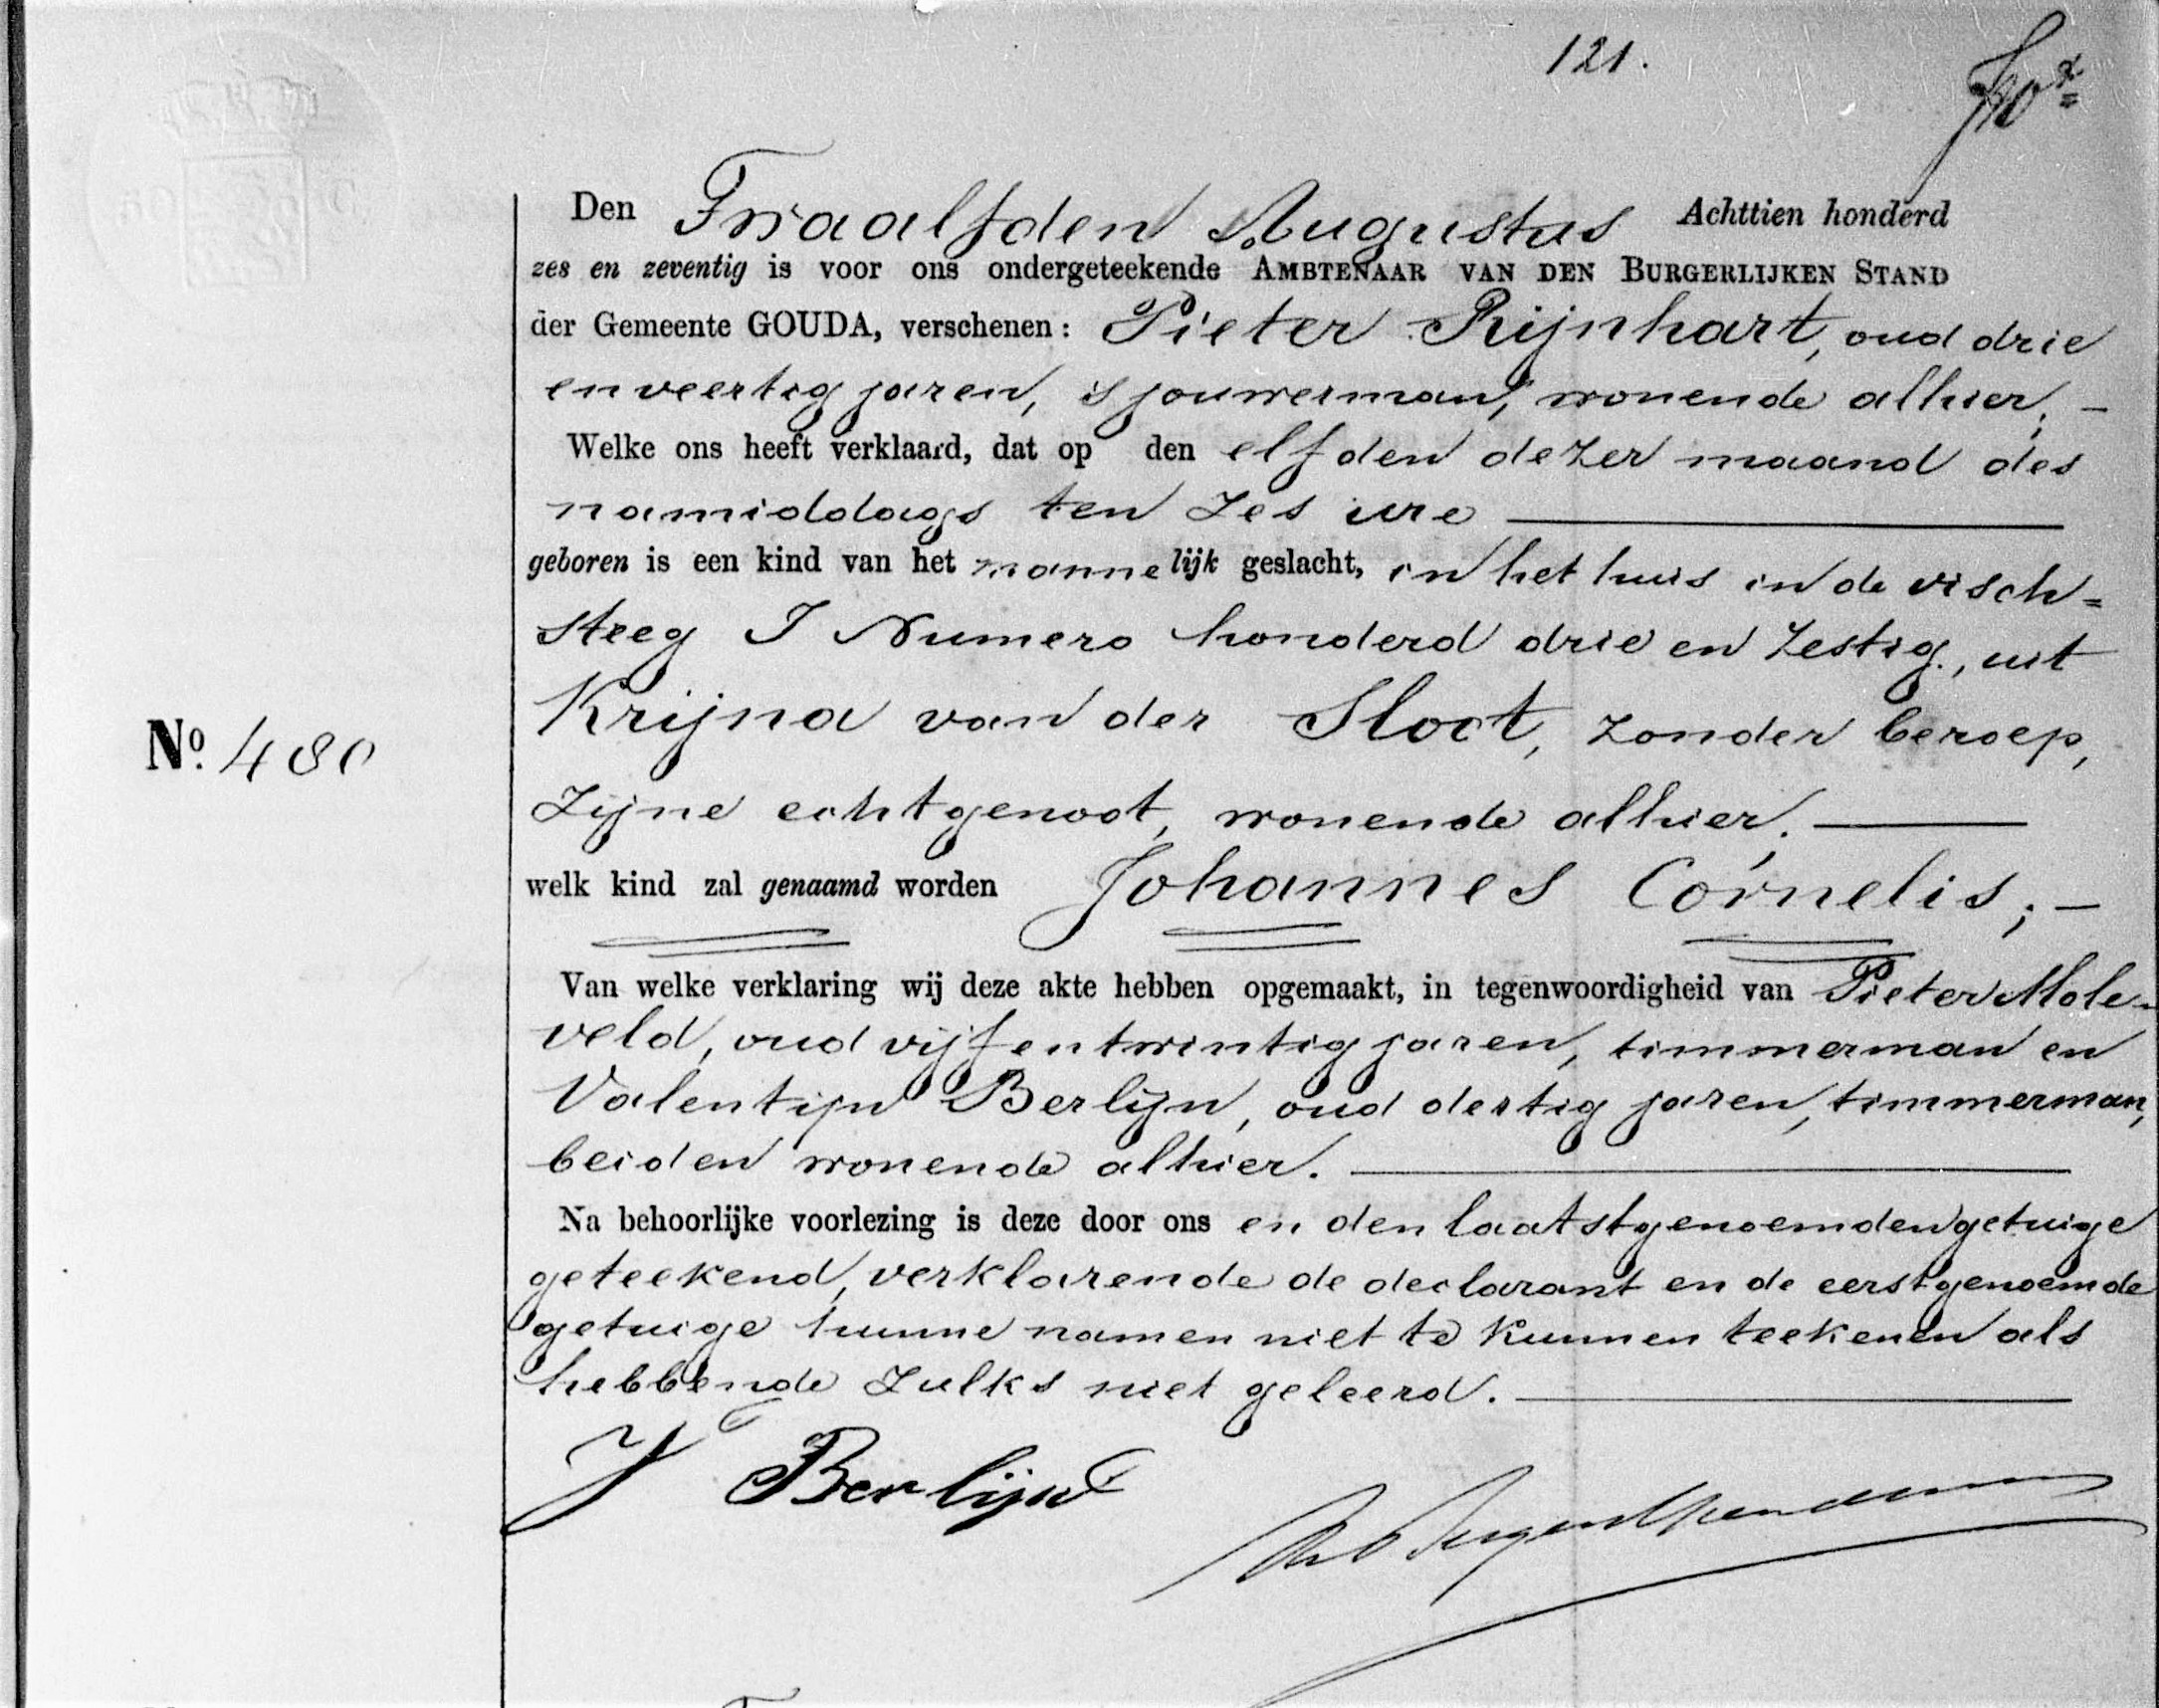 121.
Den Twaalfden Augustus Achttien honderd
zes en zeventig is voor ons ondergeteekende AMBTENAAR VAN DEN BURGERLIJKEN STAND
der Gemeente GOUDA, verschenen: Pieter Rijnhart, oud drie
en veertig jaren, sjouwerman, wonende alhier; –
Welke ons heeft verklaard, dat op den elfden dezer maand des
namiddags ten zes ure
geboren is een kind van het mannelijk geslacht, in het huis in de visch=
steeg I Numero honderd drie en zestig., uit
Krijna van der Sloot, zonder beroep,
No. 480
Zijne echtgenoot, wonende alhier.
welk kind zal genaamd worden Johannes Cornelis; –
Van welke verklaring wij deze akte hebben opgemaakt, in tegenwoordigheid van Pieter Mole-
veld, oud vijf en twintig jaren, timmerman en
Valentijn Berlijn, oud dertig jaren, timmerman,
beiden wonende alhier.
Na behoorlijke voorlezing is deze door ons en den laatstgenoemden getuige
geteekend, verklarende de declarant en de eerstgenoemde
getuige hunne namen niet te kunnen teekenen als
hebbende zulks niet geleerd.
V Berlijn